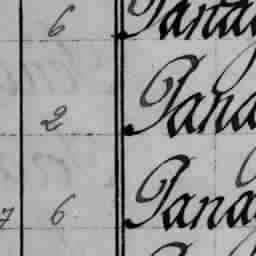 6 Pana
2 Pana
7 6 Pana